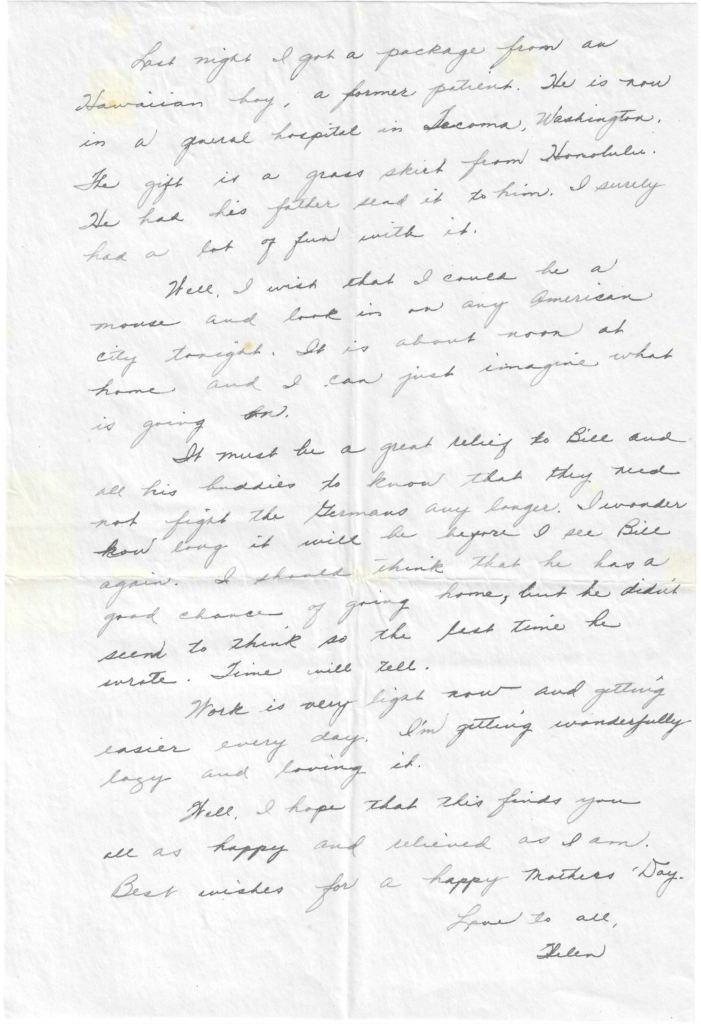 Last night I got a package from an
Hawaiian boy, a former patient. He is now
in a general hospital in Tacoma, Washington.
The gift is a grass skirt from Honolulu.
He had his father send it to him. I surely
had a lot of fun with it.
Well, I wish that I could be a
mouse and look in on any American
city tonight. It is about noon at
home and I can just imagine what
is going on.
It must be a great relief to Bill and
all his buddies to know that they need
not fight the Germans any longer. I wonder
how long it will be before I see Bill
again. I should think that he has a
good chance of going home, but he didn't
seem to think so the last time he
wrote. Time will tell.
Work is very light now and getting
easier every day. I'm getting wonderfully
lazy and loving it.
Well, I hope that this finds you
all as happy and relieved as I am.
Best wishes for a happy Mothers' Day.
Love to all,
Helen